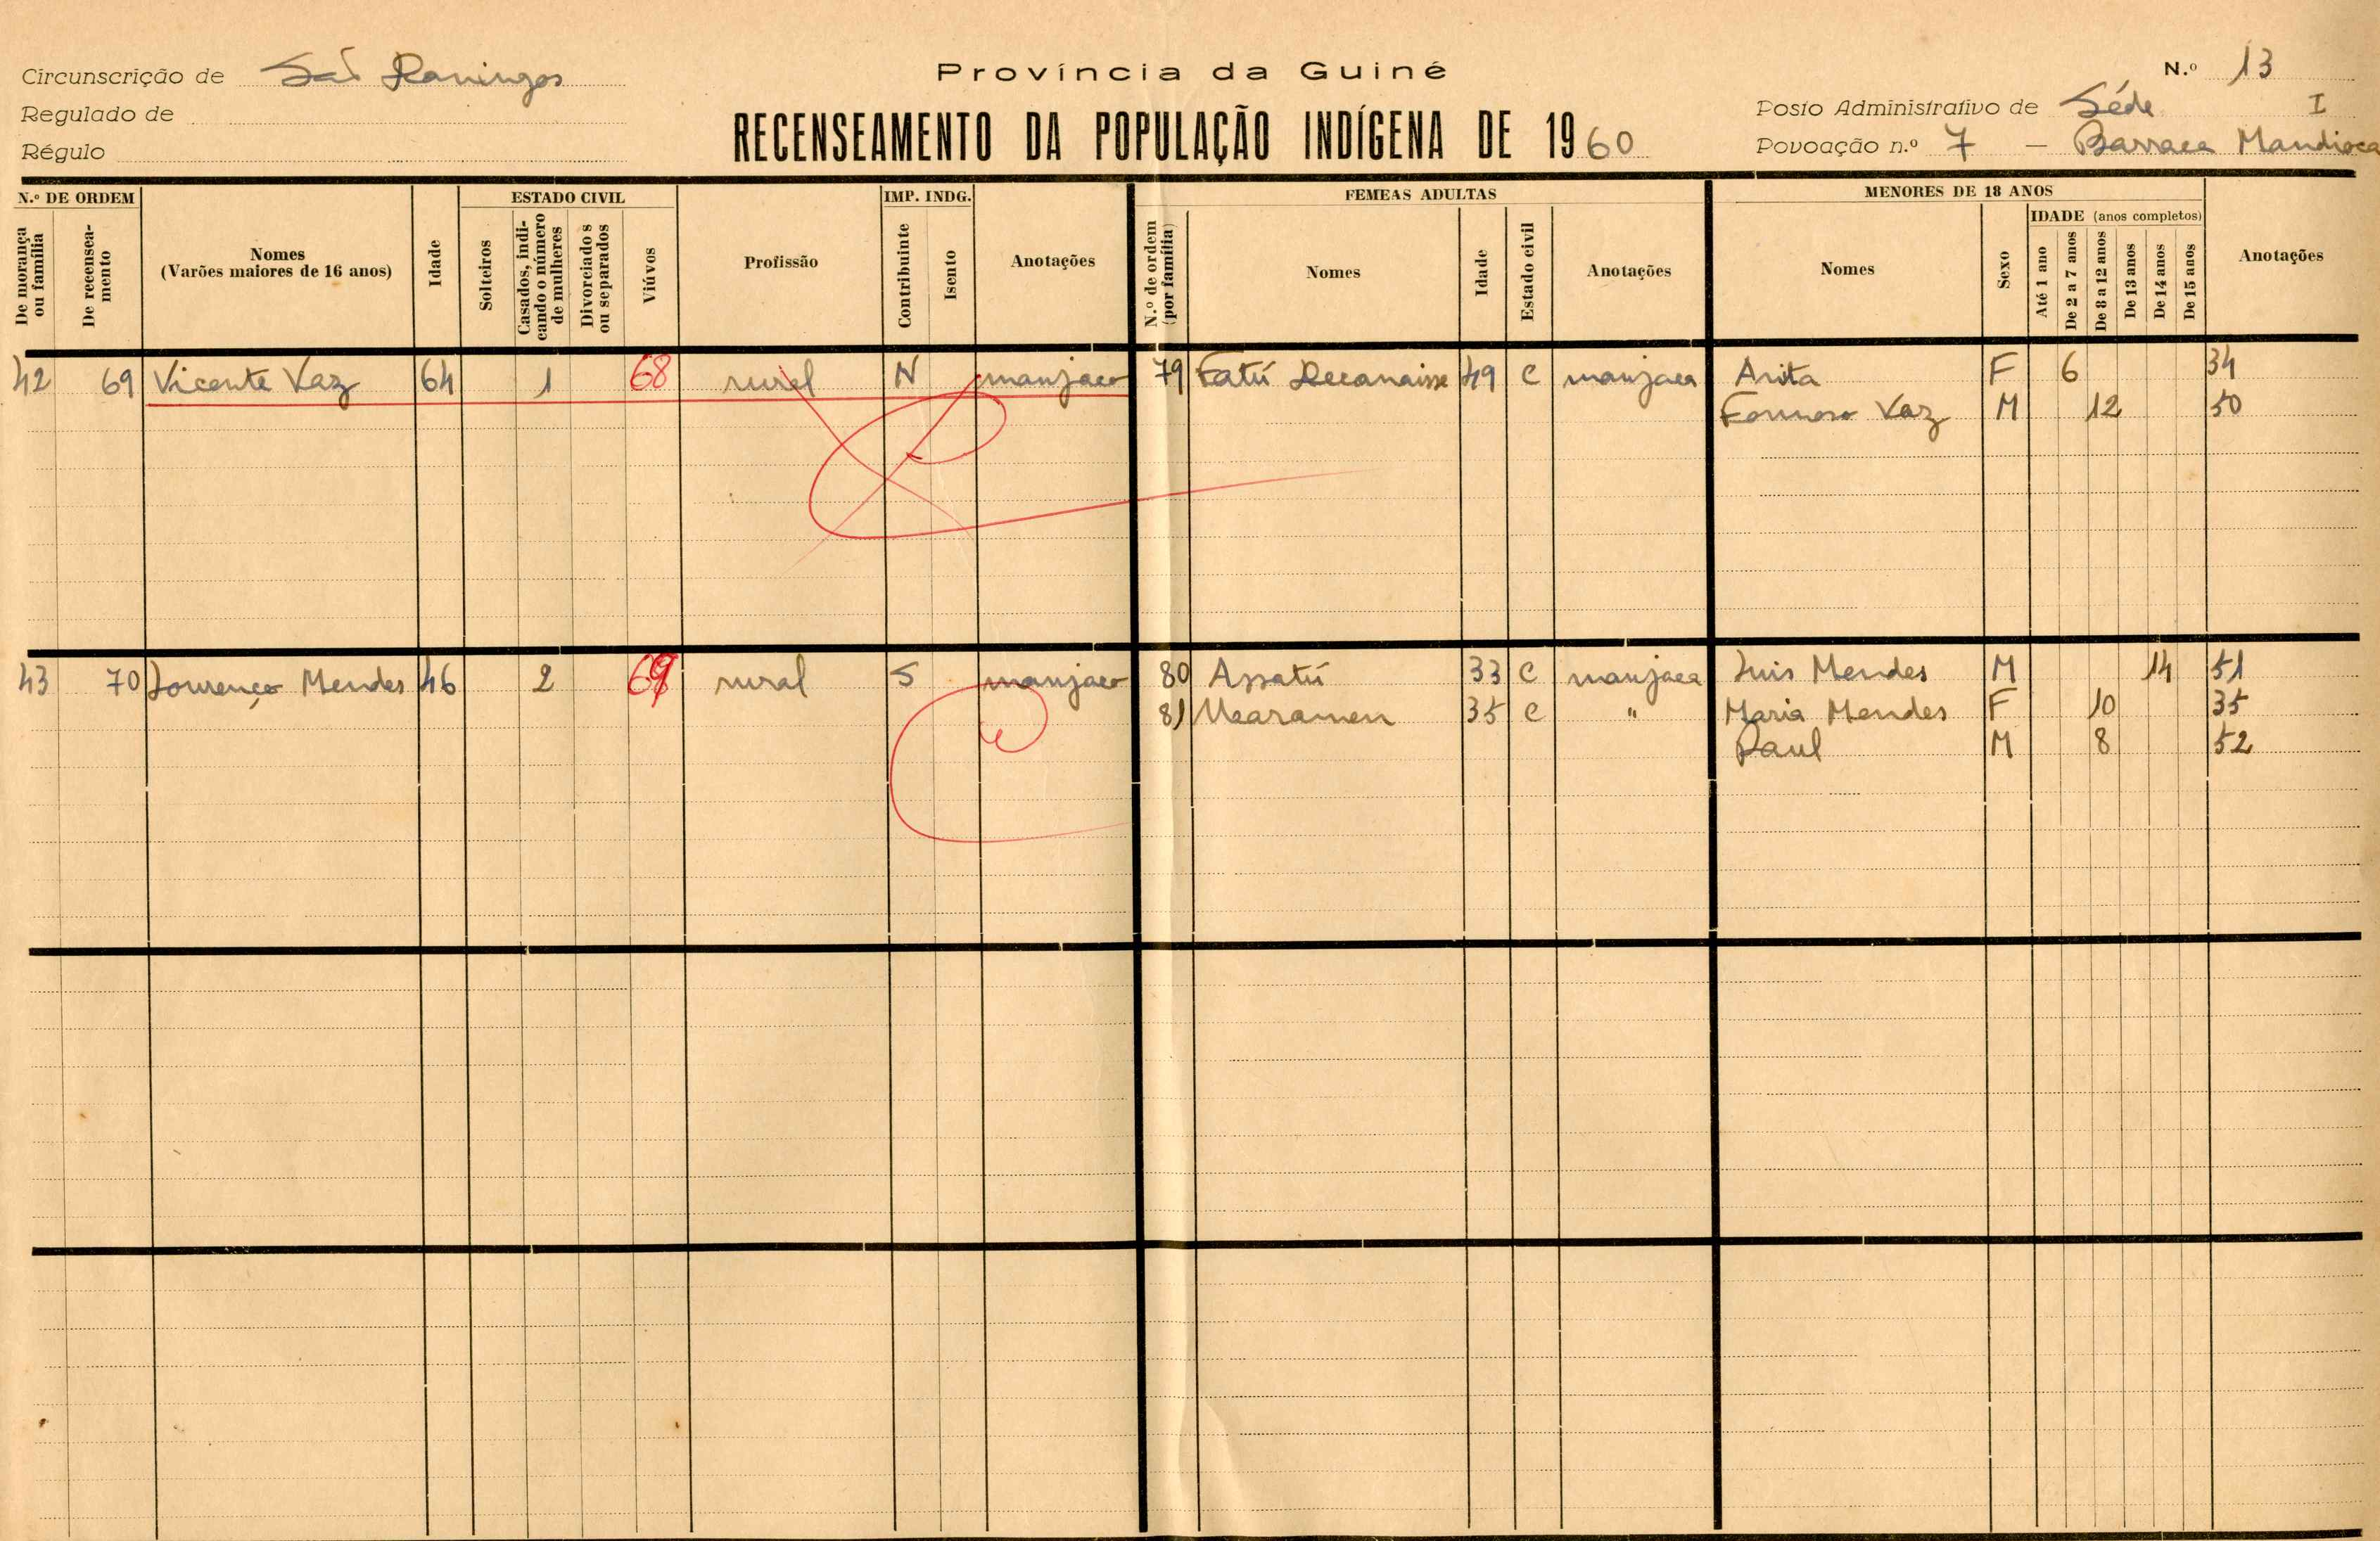 Circunscrição de São Domingos
Regulado de
Régulo
Província da Guiné
RECENSEAMENTO DA POPULAÇÃO INDÍGENA DE 1960
N.º 13
Posto Administrativo de Séde I
Povoação n.º 7 - Barraca Mandioca
N.º DE ORDEM
De morança ou família
De recenseamento
Nomes
(Varões maiores de 16 anos)
Idade
ESTADO CIVIL
Solteiros
Casados, indicando o número de mulheres
Divorciados ou separados
Viúvos
Profissão
IMP. INDG.
Contribuinte
Isento
Anotações
FEMEAS ADULTAS
N.º de ordem (por família)
Nomes
Idade
Estado civil
Anotações
MENORES DE 18 ANOS
Nomes
Sexo
IDADE (anos completos)
Até 1 ano
De 2 a 7 anos
De 8 a 12 anos
De 13 anos
De 14 anos
De 15 anos
Anotações
42 69 Vicente Vaz 64 1 68 rural N manjaco 79 Fatú 49 C manjaca Anita F 6 34
Formoso Vaz M 12 50
43 70 Lourenço Mendes 46 2 69 rural S manjaco 80 Assatú 33 C manjaca Luis Mendes M 14 51
81 35 C " Maria Mendes F 10 35
Raul M 8 52